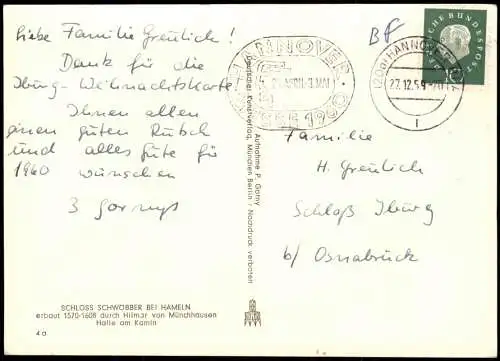 Liebe Familie Greulich!
Dank für die
Iburg-Weihnachtskarte.
Ihnen allen
einen guten Rutsch
und alles Gute für
1960 wünschen
3 Gornys
SCHLOSS SCHWÖBBER BEI HAMELN
erbaut 1570-1608 durch Hilmar von Münchhausen
Halle am Kamin
4a
Deutscher Kunstverlag, München Berlin / Nachdruck verboten
Aufnahme P. Gorny
HANNOVER
MESSE 1960
24. APRIL-3. MAI
BF
(20a) HANNOVER
27.12.59
1
DEUTSCHE BUNDESPOST
10
Familie
H. Greulich
Schloß Iburg
b/ Osnabrück